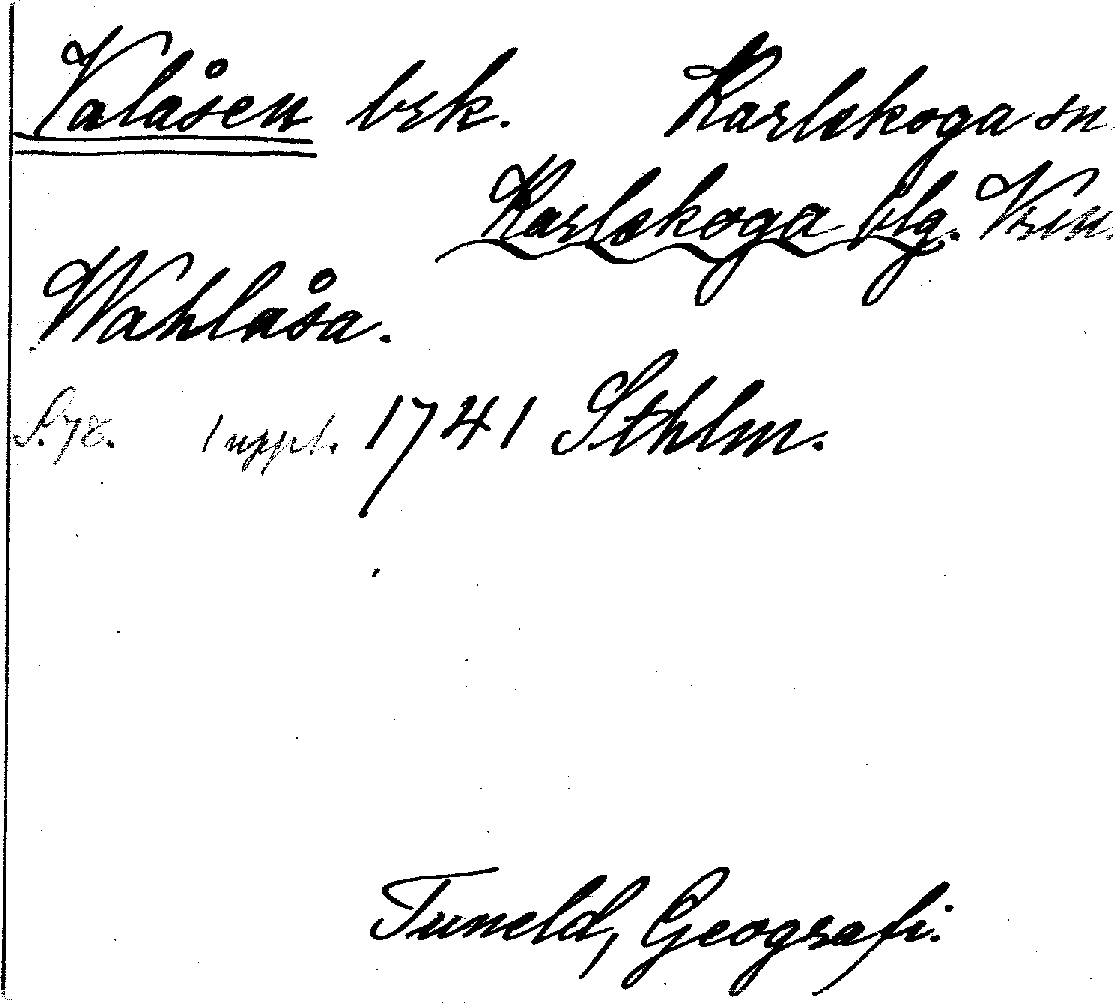 Valåsen brk. Karlskoga sn.
Karlskoga blg. Vrml.
Wahlåsa.
S. 78. 1 uppl. 1741 Sthlm.
Tuneld, Geografi.